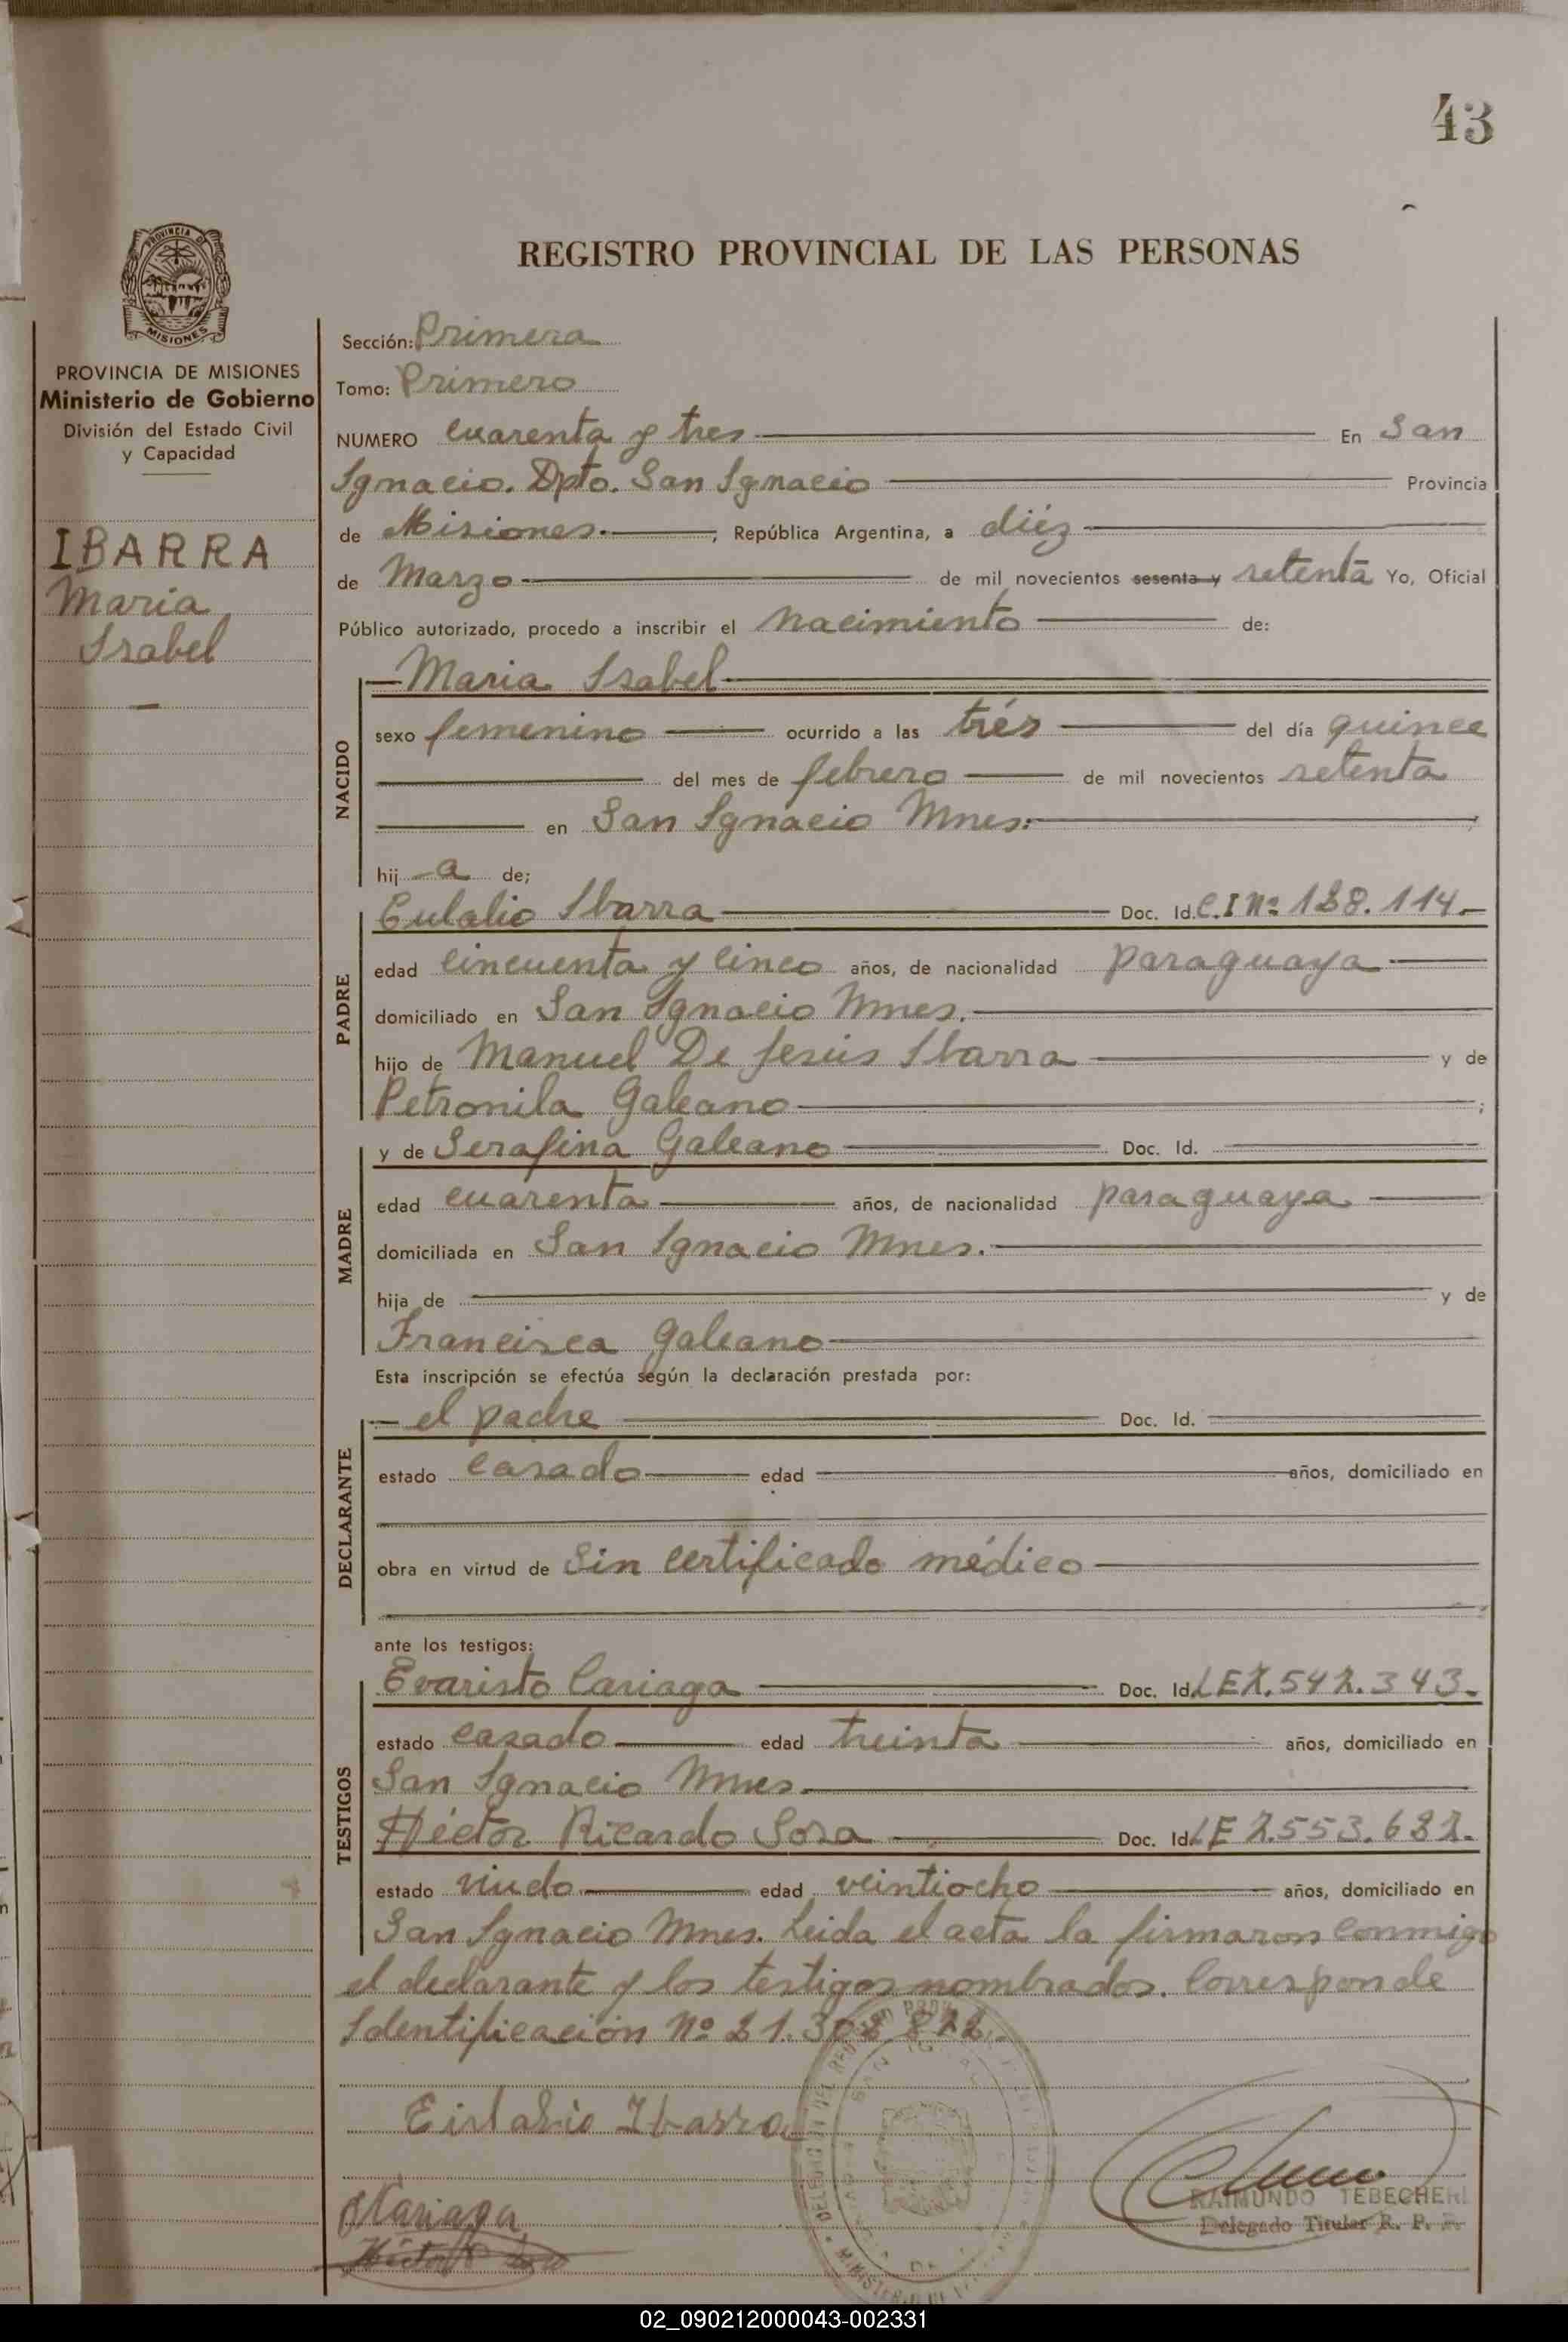 43
REGISTRO PROVINCIAL DE LAS PERSONAS
PROVINCIA DE
MISIONES
PROVINCIA DE MISIONES
Ministerio de Gobierno
División del Estado Civil
y Capacidad
IBARRA
Maria
Isabel
Sección: Primera
Tomo: Primero
NUMERO cuarenta y tres En San
Ignacio. Dpto. San Ignacio Provincia
de Misiones. ; República Argentina, a diéz
de Marzo de mil novecientos sesenta y setenta Yo, Oficial
Público autorizado, procedo a inscribir el nacimiento de:
NACIDO
Maria Isabel
sexo femenino ocurrido a las trés del día quince
del mes de febrero de mil novecientos setenta
en San Ignacio Mnes.
hij a de;
PADRE
Eulalio Ibarra Doc. Id. C.I Nº 138.114.
edad cincuenta y cinco años, de nacionalidad paraguaya
domiciliado en San Ignacio Mnes.
hijo de Manuel De Jesús Ibarra y de
Petronila Galeano ;
MADRE
y de Serafina Galeano Doc. Id.
edad cuarenta años, de nacionalidad paraguaya
domiciliada en San Ignacio Mnes.
hija de y de
Francisca Galeano
Esta inscripción se efectúa según la declaración prestada por:
DECLARANTE
el padre Doc. Id.
estado casado edad años, domiciliado en
obra en virtud de Sin certificado médico
ante los testigos:
TESTIGOS
Evaristo Cariaga Doc. Id. LE 7.542.343.
estado casado edad treinta años, domiciliado en
San Ignacio Mnes.
Héctor Ricardo Sosa Doc. Id. LE 7.553.687.
estado viudo edad veintiocho años, domiciliado en
San Ignacio Mnes. Leida el acta la firmaron conmigo
el declarante y los testigos nombrados. Corresponde
Identificación Nº 21.302.872.
Eulalio Ibarra
Cariaga
RAIMUNDO TEBECHERI
Delegado Titular R. P. P.
02_090212000043-002331